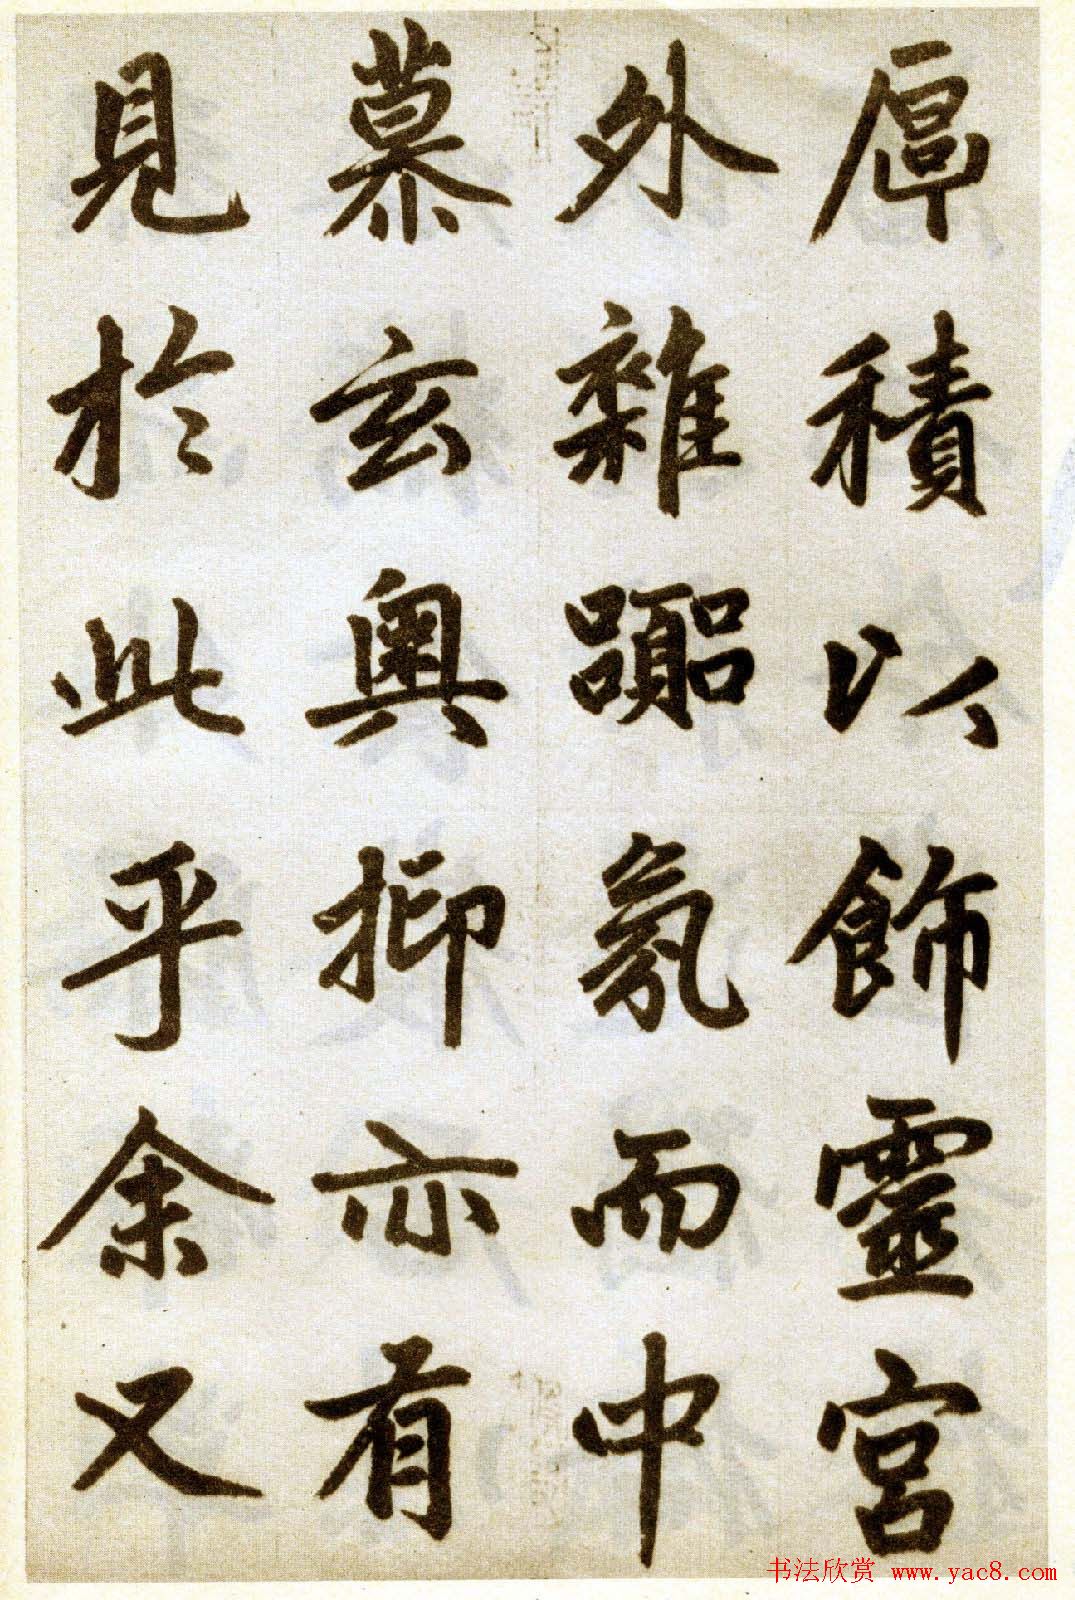 厚積以飾靈宮
外雜囂氛而中
慕玄奧抑亦有
見於此乎余又
书法欣赏 www.yac8.com